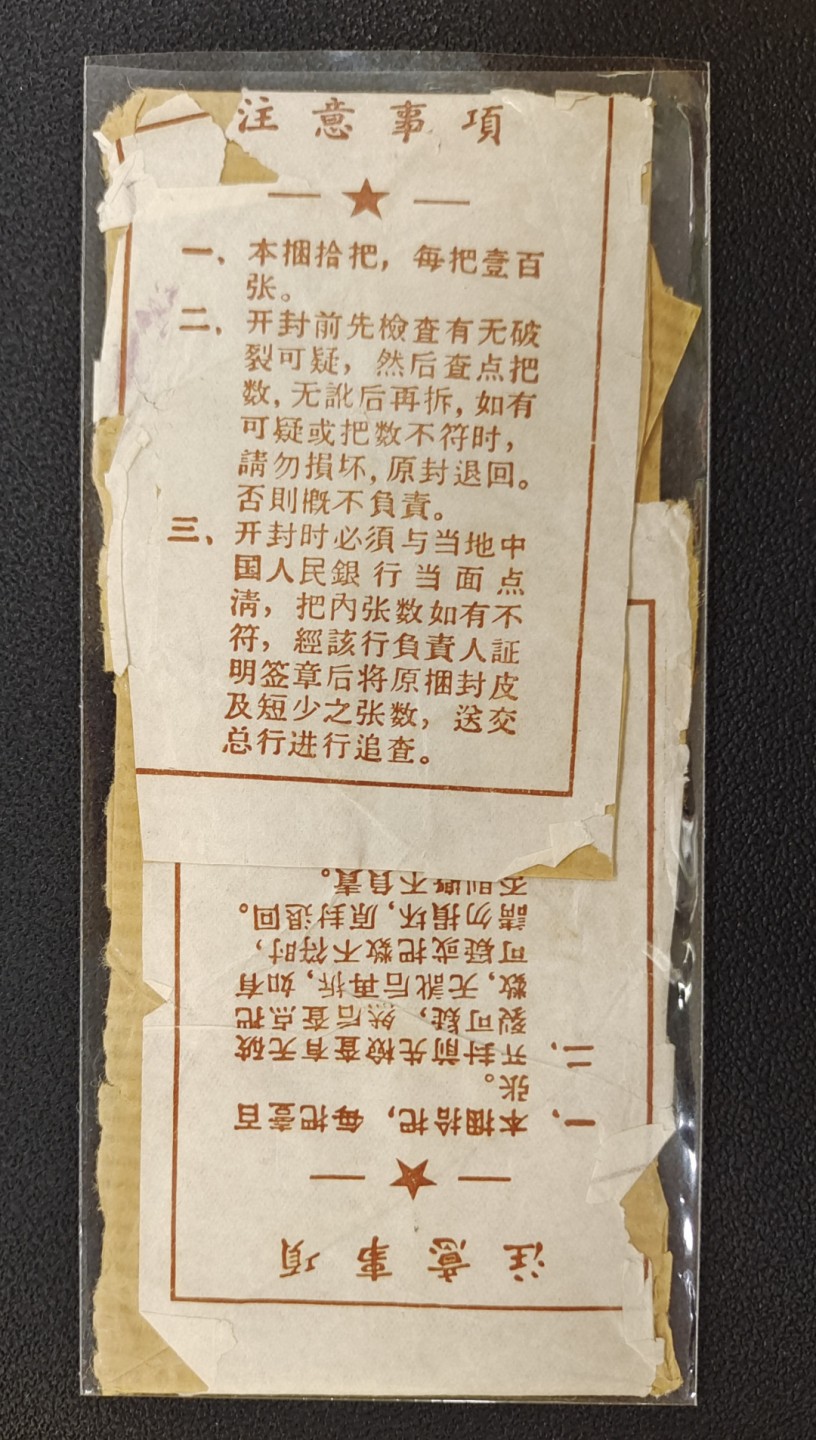 注意事項
一、本捆拾把，每把壹百
张。
二、开封前先檢查有无破
裂可疑，然后查点把
数，无訛后再拆，如有
可疑或把数不符时，
請勿損坏，原封退回。
否則概不負責。
三、开封时必須与当地中
国人民銀行当面点
清，把內张数如有不
符，經該行負責人証
明签章后将原捆封皮
及短少之张数，送交
总行进行追查。
注意事項
一、本捆拾把，每把壹百
张。
二、开封前先檢查有无破
裂可疑，然后查点把
数，无訛后再拆，如有
可疑或把数不符时，
請勿損坏，原封退回。
否則概不負責。